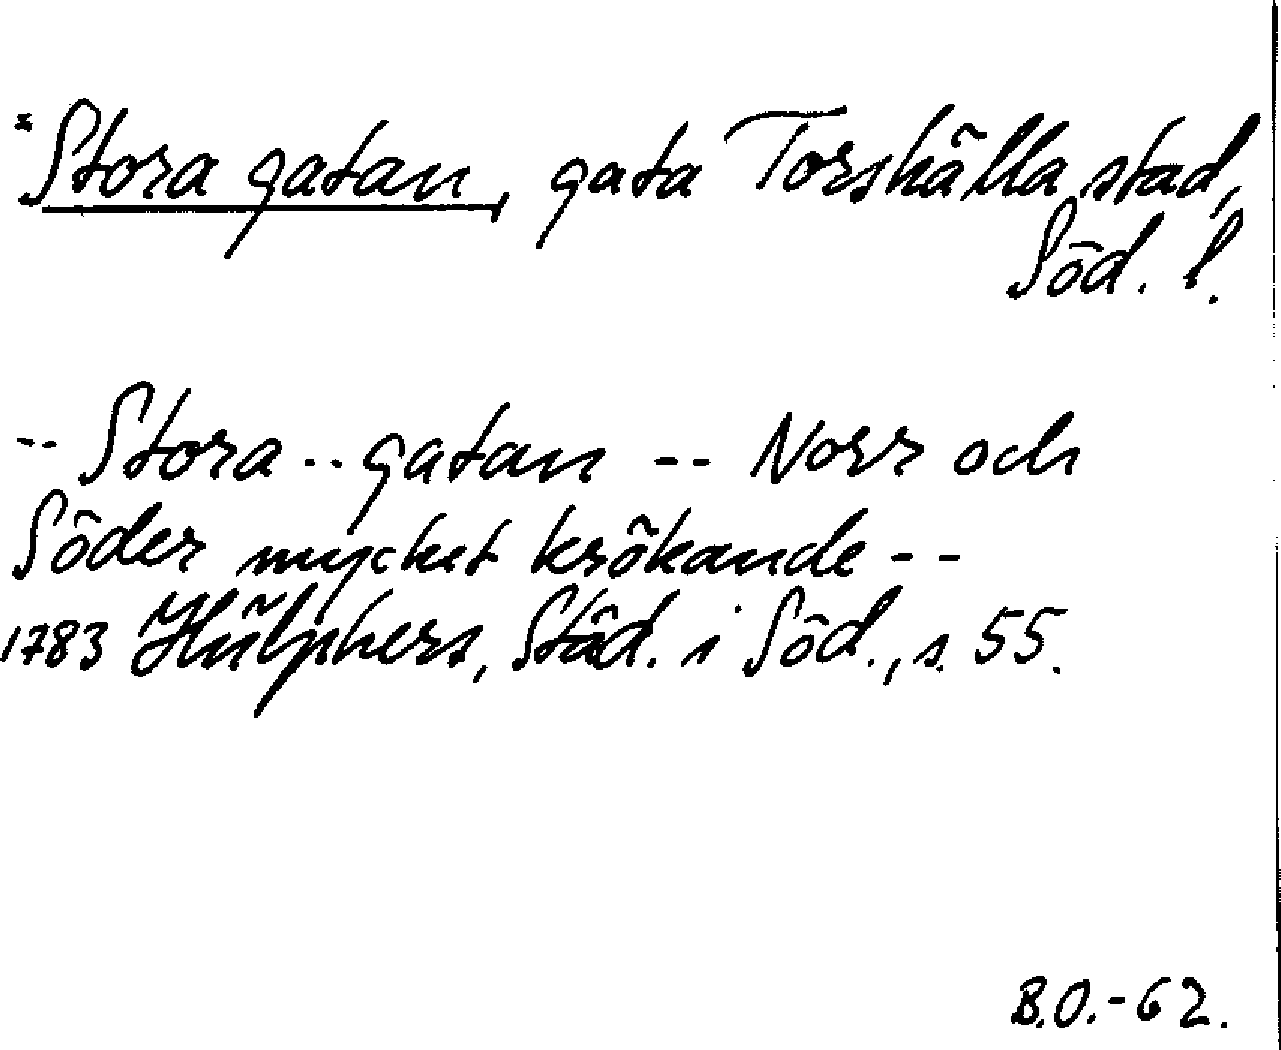 *Stora gatan, gata Torshälla stad,
Söd. l.
-- Stora .. gatan -- Norr och
Söder mycket krökande --
1783 Hülphers, Städ. i Söd., s. 55.
B.O.-62.